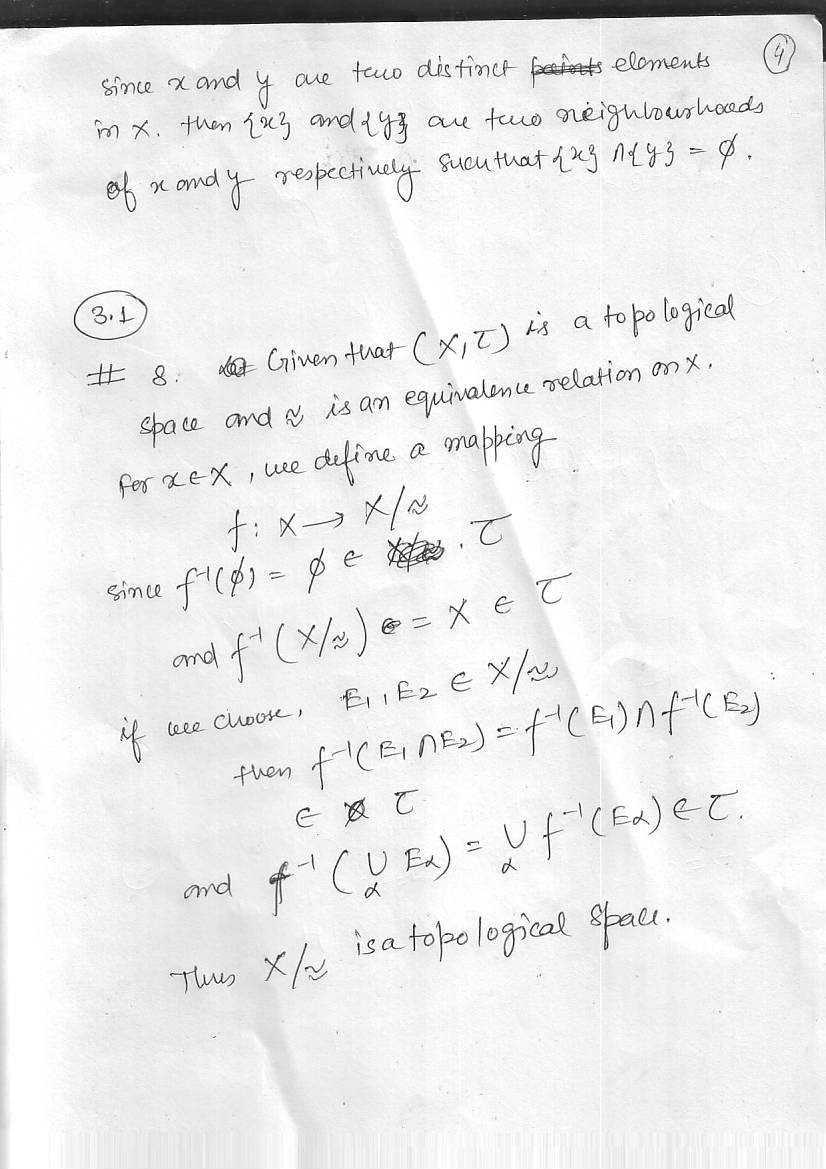 4
since x and y are two distinct points elements
in X. then {x} and {y} are two neighbourhoods
of x and y respectively such that {x} ∩ {y} = ϕ.
3.1
# 8. Given that (X, τ) is a topological
space and ≈ is an equivalence relation on X.
for x ∈ X, we define a mapping
f: X → X/≈
since f⁻¹(ϕ) = ϕ ∈ . τ
and f⁻¹(X/≈) = X ∈ τ
if we choose, E₁, E₂ ∈ X/≈
then f⁻¹(E₁ ∩ E₂) = f⁻¹(E₁) ∩ f⁻¹(E₂)
∈ τ
and f⁻¹(∪_α E_α) = ∪_α f⁻¹(E_α) ∈ τ.
Thus X/≈ is a topological space.